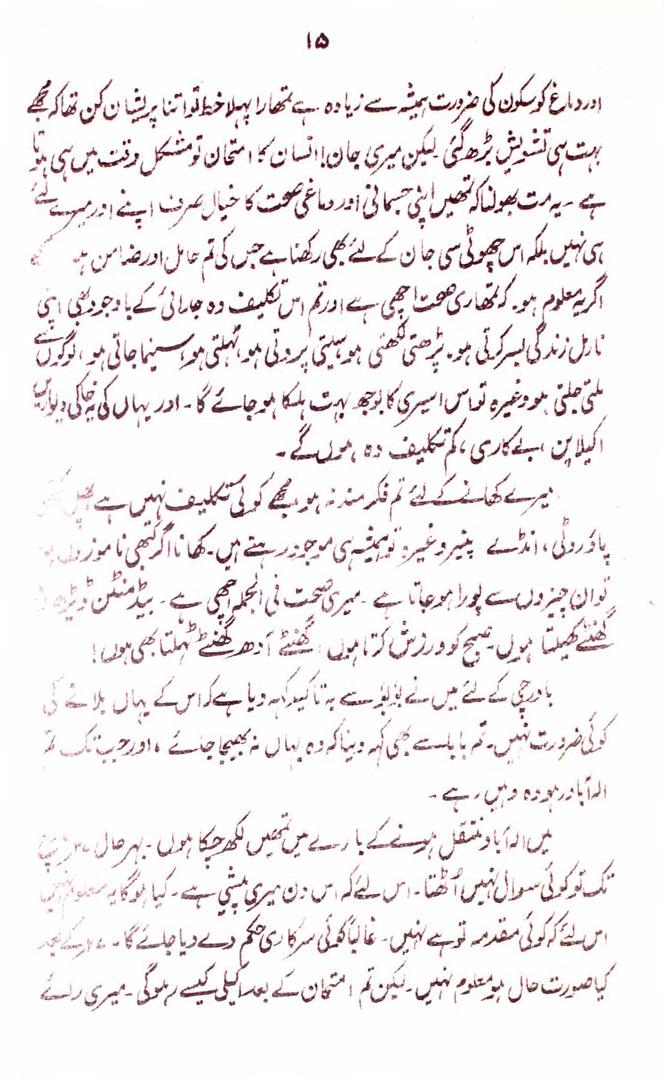 ۱۵
اور دماغ کو سکون کی ضرورت ہمیشہ سے زیادہ ہے تمھارا پہلا خط تو اتنا پریشان کن تھا کہ مجھے
بہت ہی تشویش بڑھ گئی۔ لیکن میری جان! انسان کا امتحان تو مشکل وقت میں ہی ہوتا
ہے۔ یہ مت بھولنا کہ تمھیں اپنی جسمانی اور دماغی صحت کا خیال صرف اپنے اور میرے لئے
ہی نہیں بلکہ اس چھوٹی سی جان کے لئے بھی رکھنا ہے جس کی تم حامل اور ضامن ہو
اگر یہ معلوم ہو۔ کہ تمھاری صحت اچھی ہے اور تم اس تکلیف دہ جدائی کے باوجود بھی اپنی
نارمل زندگی بسر کرتی ہو۔ پڑھتی لکھتی ہو سیتی پروتی ہو، ٹہلتی ہو، سنیما جاتی ہو، لوگوں سے
ملتی جلتی ہو وغیرہ تو اس اسیری کا بوجھ بہت ہلکا ہو جائے گا۔ اور یہاں کی یہ خاکی دیواریں
اکیلا پن، بے کاری، کم تکلیف دہ ہوں گے۔
میرے کھانے کے لئے تم فکر مند نہ ہو مجھے کوئی تکلیف نہیں ہے پھل
پاؤ روٹی، انڈے پنیر وغیرہ تو ہمیشہ ہی موجود رہتے ہیں۔ کھانا اگر کبھی ناموزوں
تو ان چیزوں سے پورا ہو جاتا ہے۔ میری صحت فی الجملہ اچھی ہے۔ بیڈ منٹن ڈیڑھ
گھنٹے کھیلتا ہوں۔ صبح کو ورزش کرتا ہوں، گھنٹے آدھ گھنٹے ٹہلتا بھی ہوں!
باورچی کے لئے میں نے سے بہ تاکید کہہ دیا ہے کہ اس کے یہاں بلانے کی
کوئی ضرورت نہیں۔ تم بابا سے بھی کہہ دینا کہ وہ یہاں نہ بھیجا جائے، اور جب تک تم
الہ آباد رہو وہ وہیں رہے۔
میں الہ آباد منتقل ہونے کے بارے میں تمھیں لکھ چکا ہوں۔ بہر حال
تک تو کوئی سوال نہیں اُٹھتا۔ اس لئے کہ اس دن میری پیشی ہے۔ کیا ہوگا یہ معلوم نہیں
اس لئے کہ کوئی مقدمہ تو ہے نہیں۔ غالباً کوئی سرکاری حکم دے دیا جائے گا۔ کے بعد
کیا صورت حال ہو معلوم نہیں۔ لیکن تم امتحان کے بعد اکیلی کیسے رہو گی۔ میری رائے